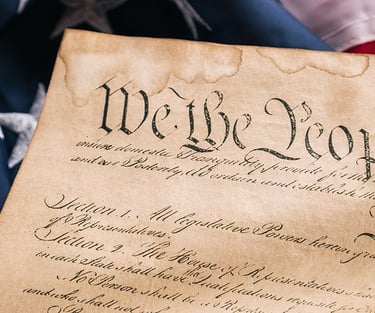 We the Peop
insure domestic Tranquility, provide for
and our Posterity, do ordain and establish this
Section. 1. All legislative Powers herein gra
of Representatives.
Section. 2. The House of Representatives sha
in each State shall have the Qualifications requisite for
No Person shall be a Repre
and who shall not